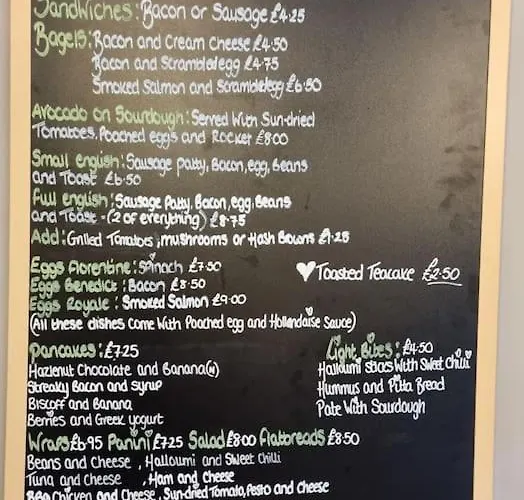 Sandwiches: Bacon or Sausage £4.25
Bagels: Bacon and Cream Cheese £4.50
Bacon and Scrambled egg £4.75
Smoked Salmon and Scrambled egg £6.50
Avocado on Sourdough: Served With Sun-dried
Tomatoes, Poached eggs and Rocket £8.00
Small english: Sausage patty, Bacon, egg, Beans
and Toast £6.50
Full english: Sausage Patty, Bacon, egg, Beans
and Toast - (2 of everything) £8.75
Add: Grilled Tomatoes, mushrooms or Hash Browns £1.25
Eggs Florentine: Spinach £7.50
Eggs Benedict: Bacon £8.50
Eggs Royale: Smoked Salmon £9.00
♥ Toasted Teacake £2.50
(All these dishes Come With Poached egg and Hollandaise Sauce)
Pancakes: £7.25
Hazlenut Chocolate and Banana (N)
Streaky Bacon and Syrup
Biscoff and Banana
Berries and Greek yogurt
Light Bites: £4.50
Halloumi sticks With Sweet Chilli
Hummus and Pitta Bread
Pate With Sourdough
Wraps £6.95 Panini £7.25 Salad £8.00 Flatbreads £8.50
Beans and Cheese, Halloumi and Sweet Chilli
Tuna and Cheese, Ham and Cheese
BBQ Chicken and Cheese, Sun-dried Tomato, Pesto and Cheese